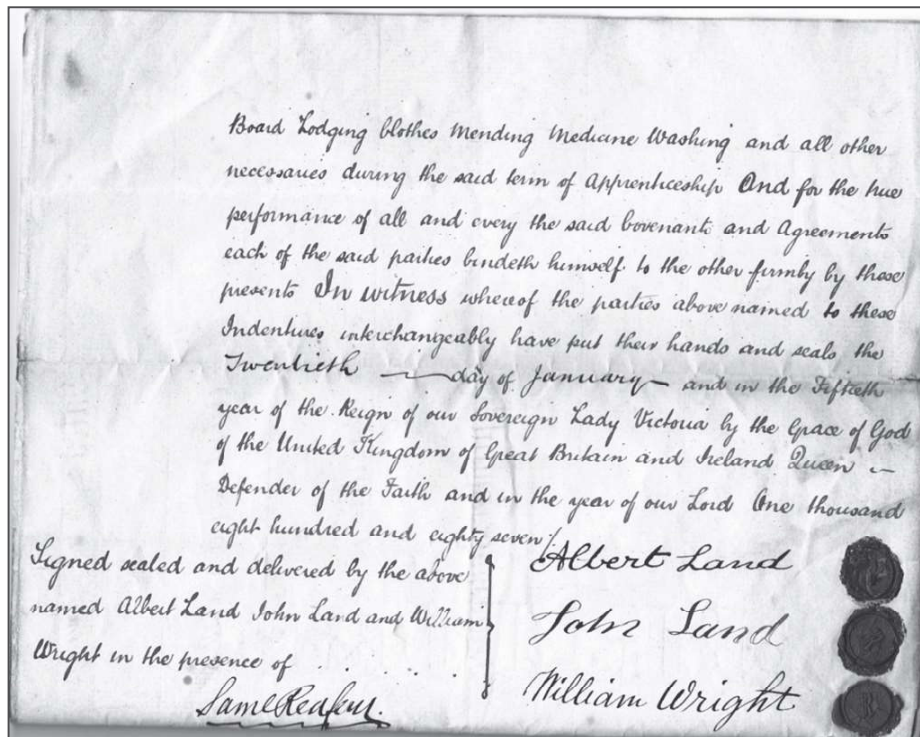 Board Lodging Clothes Mending Medicine Washing and all other
necessaries during the said term of Apprenticeship And for the true
performance of all and every the said Covenants and Agreements
each of the said parties bindeth himself to the other firmly by these
presents In witness whereof the parties above named to these
Indentures interchangeably have put their hands and seals the
Twentieth — day of January — and in the Fiftieth
year of the Reign of our Sovereign Lady Victoria by the Grace of God
of the United Kingdom of Great Britain and Ireland Queen —
Defender of the Faith and in the year of our Lord One thousand
eight hundred and eighty seven /.
Signed sealed and delivered by the above
named Albert Land John Land and William
Wright in the presence of . . . .
Saml
Albert Land
John Land
William Wright